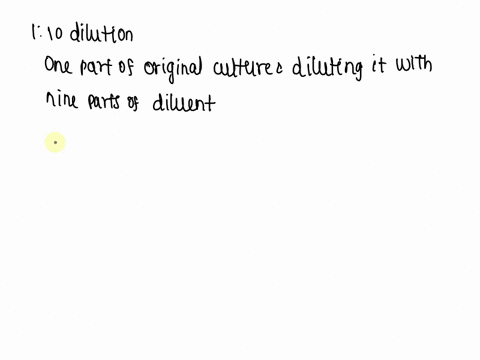 1:10 dilution
One part of original culture & diluting it with
nine parts of diluent